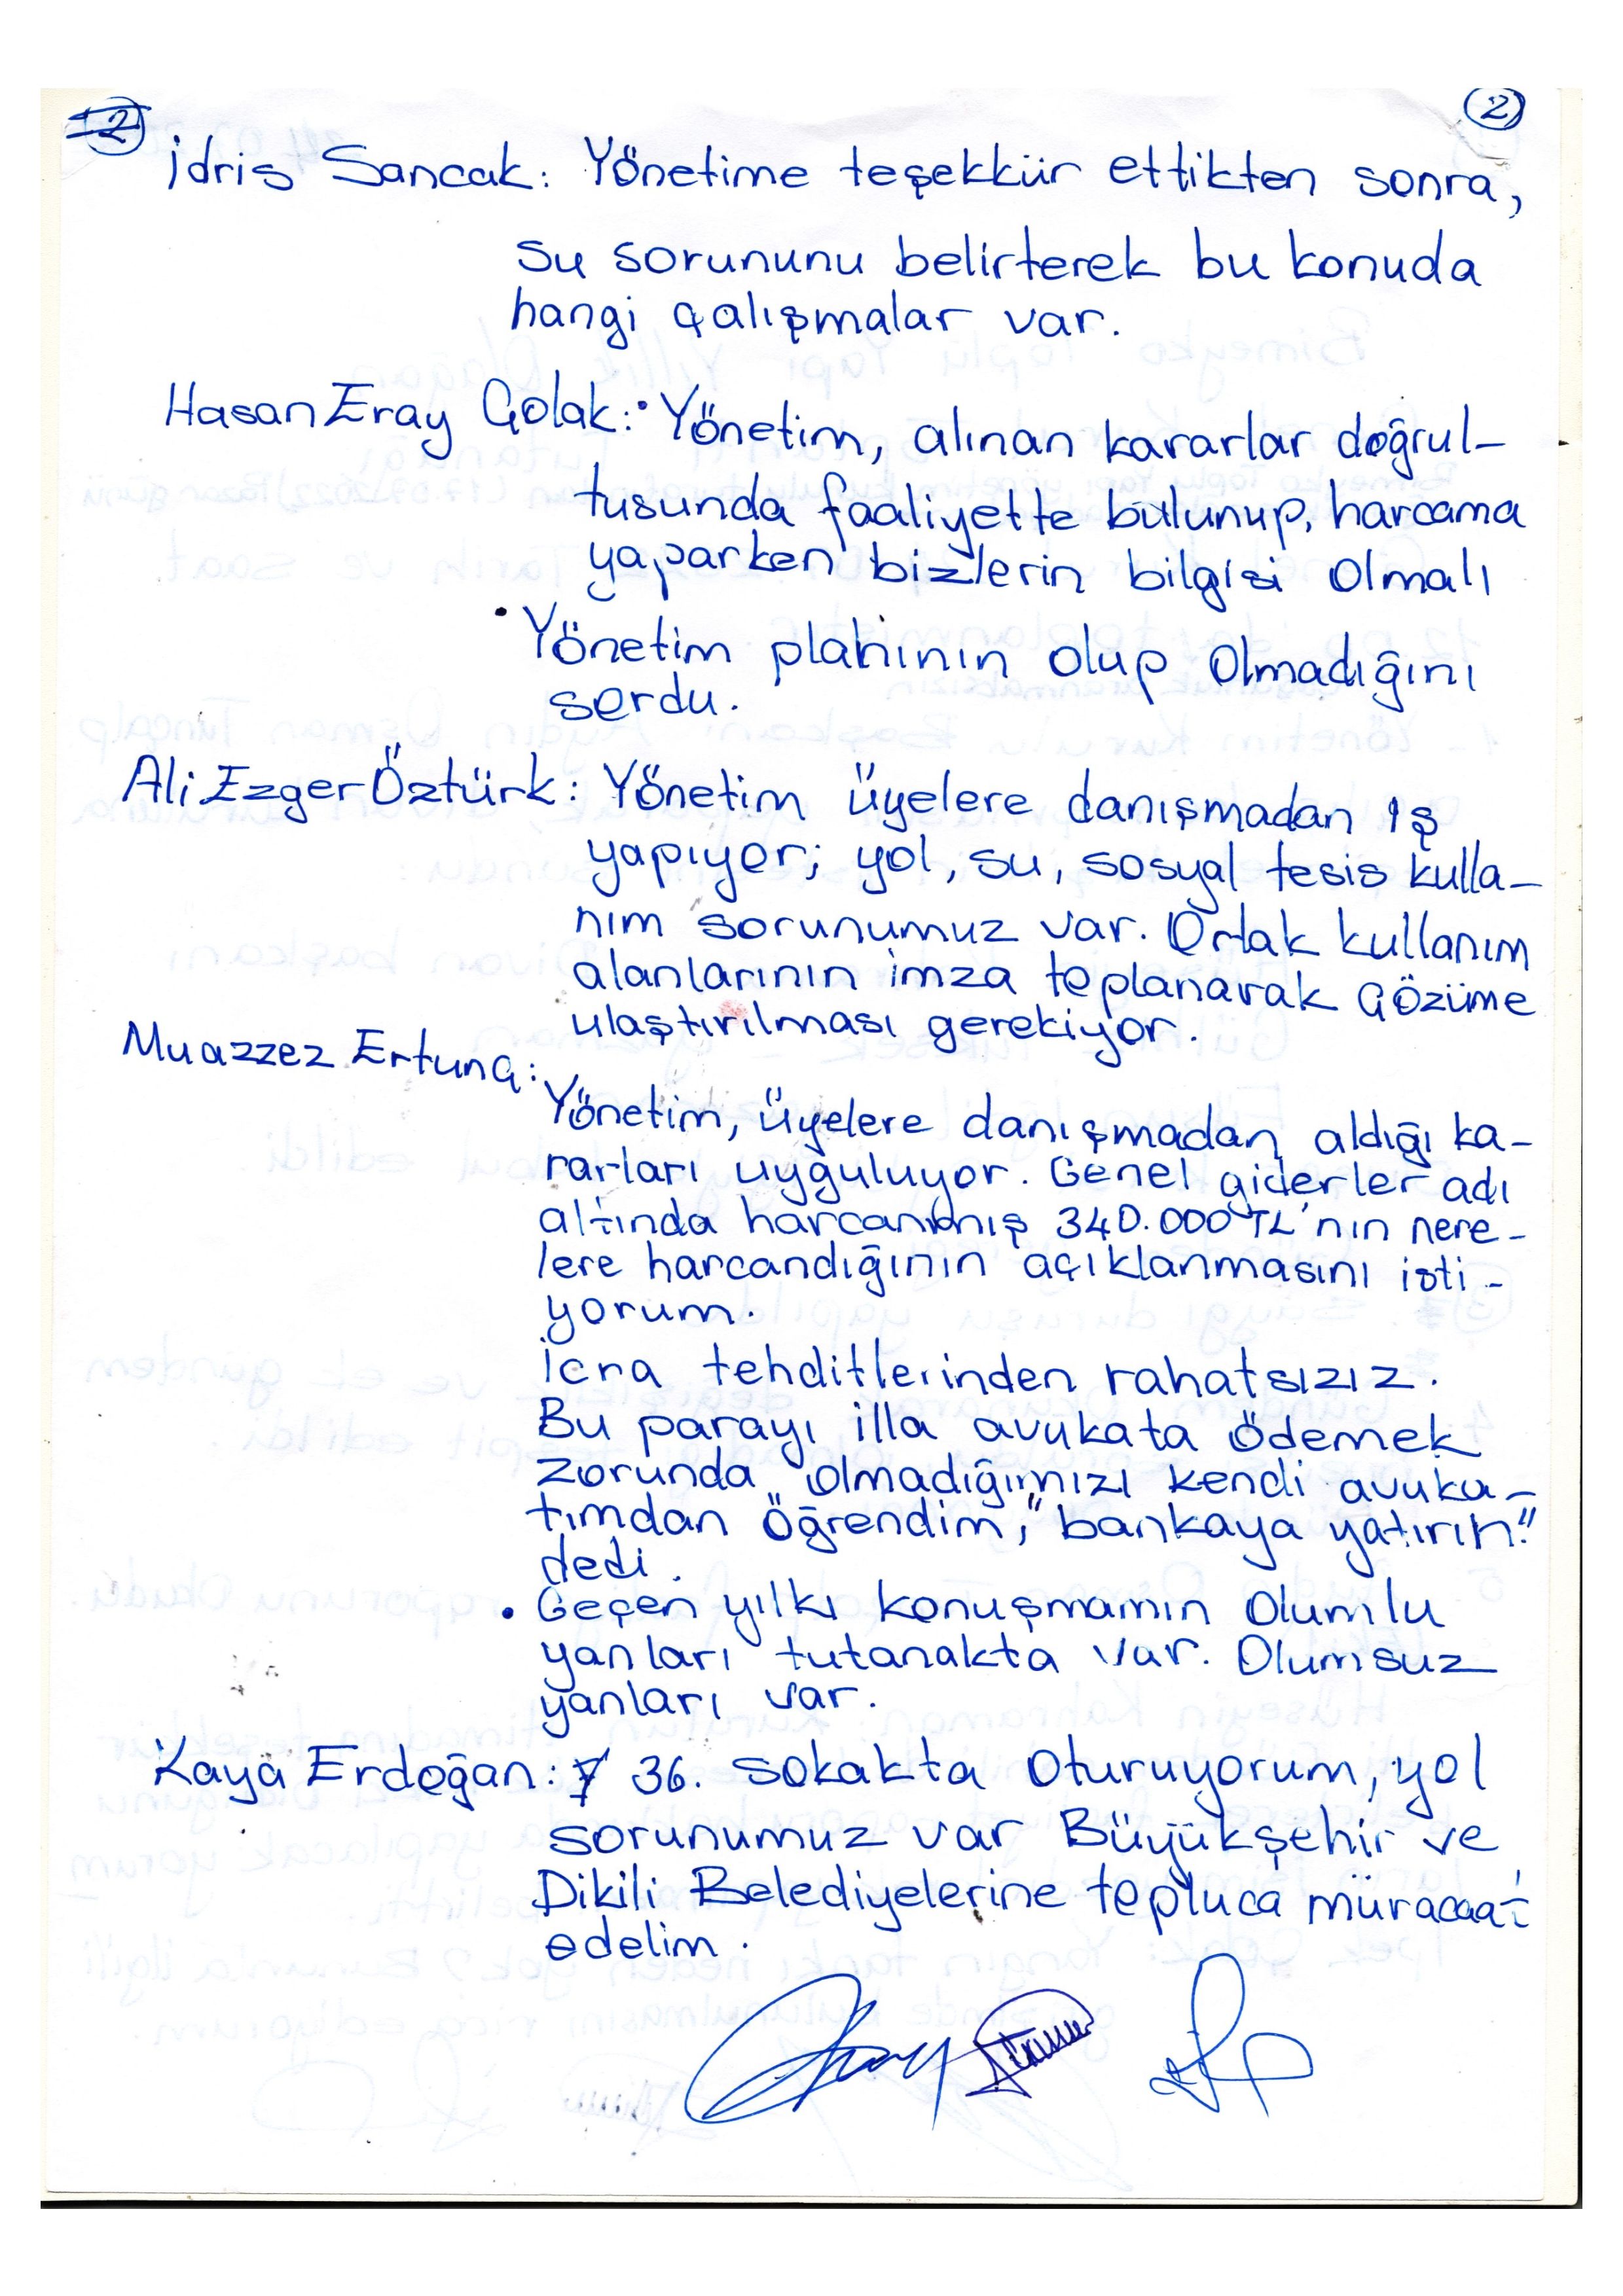 2 2
İdris Sancak: Yönetime teşekkür ettikten sonra,
su sorununu belirterek bu konuda
hangi çalışmalar var.
Hasan Eray Çolak: • Yönetim, alınan kararlar doğrul-
tusunda faaliyette bulunup, harcama
yaparken bizlerin bilgisi olmalı
• Yönetim planının olup olmadığını
sordu.
Ali Ezger Öztürk: Yönetim üyelere danışmadan iş
yapıyor; yol, su, sosyal tesis kulla-
nım sorunumuz var. Ortak kullanım
alanlarının imza toplanarak çözüme
ulaştırılması gerekiyor.
Muazzez Ertunç:
Yönetim, üyelere danışmadan aldığı ka-
rarları uyguluyor. Genel giderler adı
altında harcanmış 340.000 TL'nın nere-
lere harcandığının açıklanmasını isti-
yorum.
İcra tehditlerinden rahatsızız.
Bu parayı illa avukata ödemek
zorunda olmadığımızı kendi avuka-
tımdan öğrendim, "bankaya yatırın."
dedi.
• Geçen yılki konuşmamın olumlu
yanları tutanakta var. Olumsuz
yanları var.
Kaya Erdoğan: 36. sokakta oturuyorum, yol
sorunumuz var Büyükşehir ve
Dikili Belediyelerine topluca müracaat
edelim.